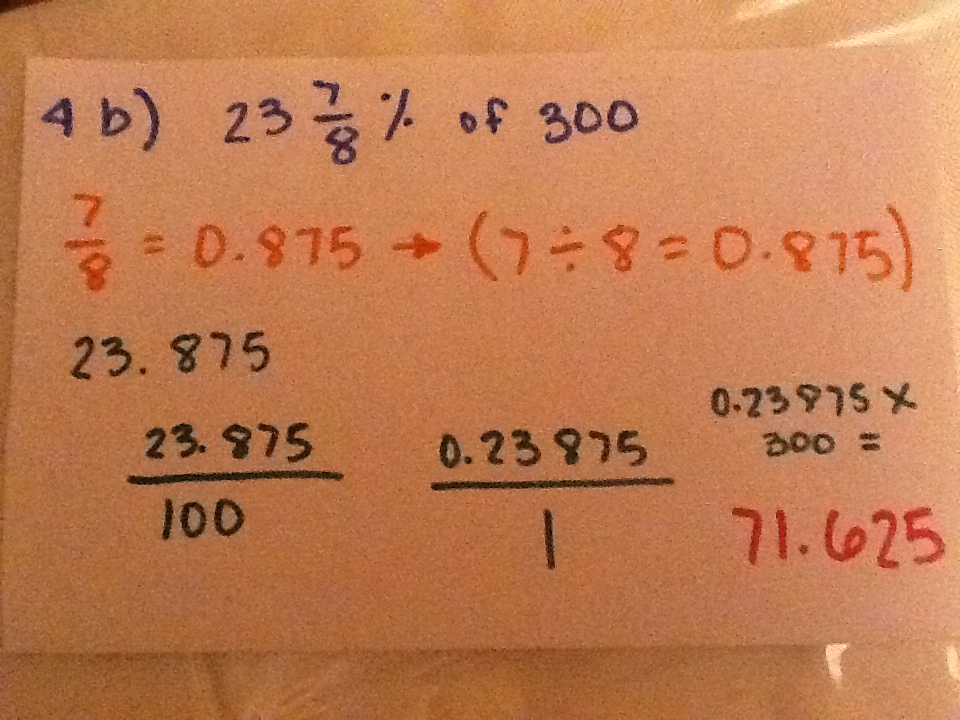 4 b) 23 7/8 % of 300
7/8 = 0.875 → (7 ÷ 8 = 0.875)
23.875
23.875/100
0.23875/1
0.23875 ×
300 =
71.625